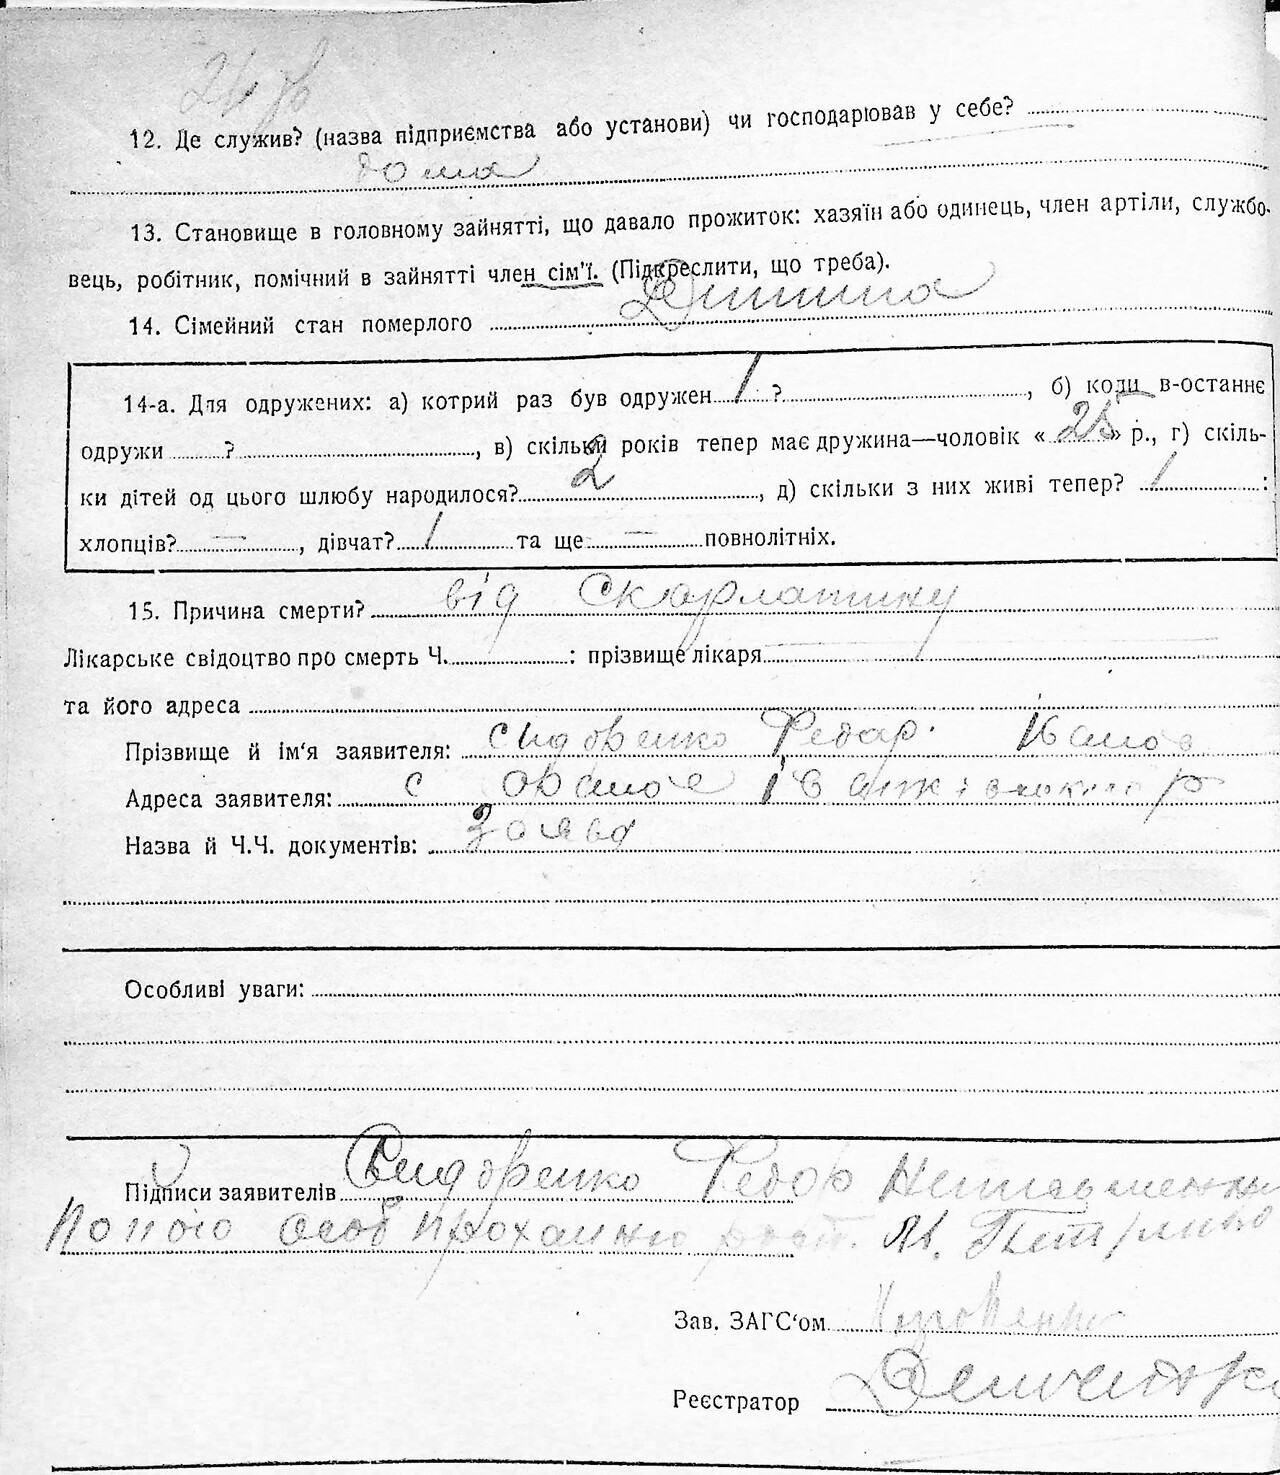 12. Де служив? (назва підприємства або установи) чи господарював у себе?
дома
13. Становище в головному зайнятті, що давало прожиток: хазяїн або одинець, член артіли, службо-
вець, робітник, помічний в зайнятті член сім'ї. (Підкреслити, що треба).
14. Сімейний стан померлого Дитина
14-а. Для одружених: а) котрий раз був одружен 1 ?, б) коли в-останнє
одружи ?, в) скільки років тепер має дружина—чоловік «25» р., г) скіль-
ки дітей од цього шлюбу народилося? 2, д) скільки з них живі тепер? 1 :
хлопців? —, дівчат? 1 та ще — повнолітніх.
15. Причина смерти? від Скорлатину
Лікарське свідоцтво про смерть Ч. : прізвище лікаря
та його адреса
Прізвище й ім'я заявителя: Сидоренко Федар
Адреса заявителя: с
Назва й Ч.Ч. документів: заява
Особливі уваги:
Підписи заявителів Сидоренко Федор Неписьменний
По його особ проханню
Зав. ЗАГС'ом
Реєстратор